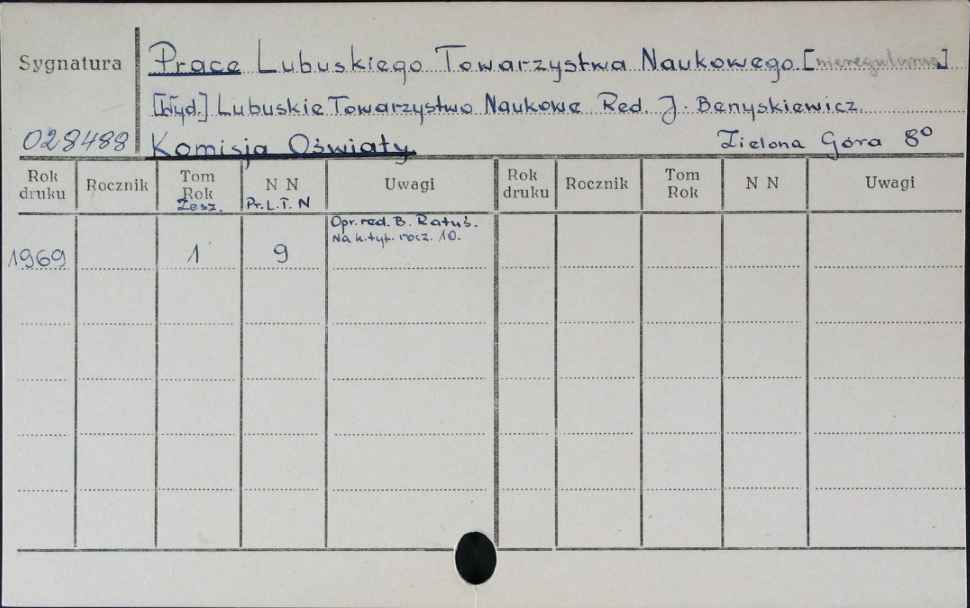 Sygnatura
Prace Lubuskiego Towarzystwa Naukowego [nieregularne]
[Wyd.] Lubuskie Towarzystwo Naukowe. Red. J. Benyskiewicz.
028488
Komisja Oświaty.
Zielona Góra 8°
Rok druku Rocznik Tom Rok Zesz. N N Pr. Ł. T. N Uwagi Rok druku Rocznik Tom Rok N N Uwagi
Opr. red. B. Ratuś.
Na k. tyt. rocz. 10.
1969 1 9